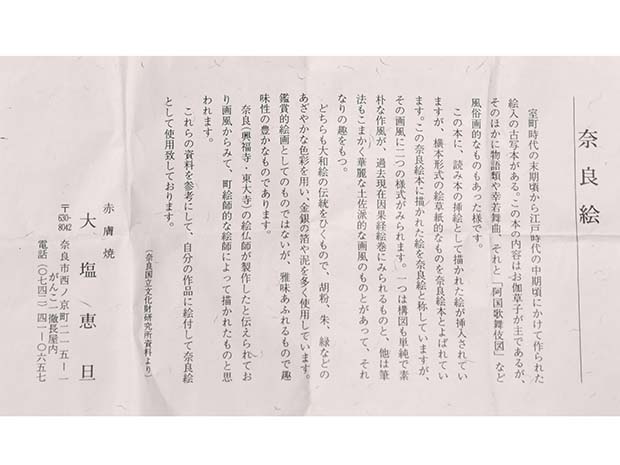 奈良絵
室町時代の末期頃から江戸時代の中期頃にかけて作られた
絵入の古写本がある。この本の内容はお伽草子が主であるが、
そのほかに物語類や幸若舞曲、それと「阿国歌舞伎図」など
風俗画的なものもあった様です。
この本に、読み本の挿絵として描かれた絵が挿入されてい
ますが、横本形式の絵草紙的なものを奈良絵本とよばれてい
ます。この奈良絵本に描かれた絵を奈良絵と称していますが、
その画風に二つの様式がみられます。一つは構図も単純で素
朴な作風が、過去現在因果経絵巻にみられるものと、他は筆
法もこまかく華麗な土佐派的な画風のものとがあって、それ
なりの趣をもつ。
どちらも大和絵の伝統をひくもので、胡粉、朱、緑などの
あざやかな色彩を用い、金銀の箔や泥を多く使用しています。
鑑賞的絵画としてのものではないが、雅味あふれるもので趣
味性の豊かなものであります。
奈良(興福寺・東大寺)の絵仏師が製作したと伝えられてお
り画風からみて、町絵師的な絵師によって描かれたものと思
われます。
これらの資料を参考にして、自分の作品に絵付して奈良絵
として使用致しております。
(奈良国立文化財研究所資料より)
赤膚焼
大塩恵旦
〒630-8042 奈良市西ノ京町二一五-一
がんこ一徹長屋内
電話(〇七四二)四一-〇六五七